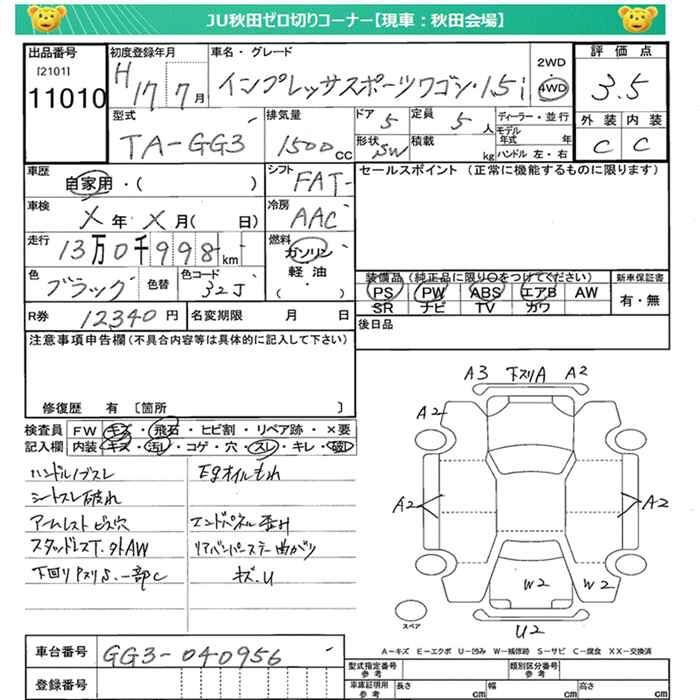 JU秋田ゼロ切りコーナー【現車：秋田会場】
出品番号 初度登録年月 車名・グレード 2WD 評価点
[2101] 11010 H17 7月 インプレッサスポーツワゴン・1.5i 4WD 3.5
型式 排気量 ドア 定員 ディーラー・並行 外装 内装
TA-GG3 1500cc 5 5人 モデル年式 年 C C
形状 SW 積載 kg ハンドル 左・右
車歴 自家用・( ) シフト FAT セールスポイント (正常に機能するものに限ります)
車検 X年X月( 日) 冷房 AAC
走行 13万0千998km 燃料 ガソリン・軽油・( )
色 ブラック 色替 色コード 32J
装備品 (純正品に限り○をつけてください) 新車保証書
PS PW ABS エアB AW 有・無
SR ナビ TV カワ
R券 12340円 名変期限 月 日 後日品
注意事項申告欄(不具合内容等は具体的に記入して下さい)
修復歴 有 〔箇所 〕
検査員 FW キズ・飛石・ヒビ割・リペア跡・×要
記入欄 内装 キズ・汚レ・コゲ・穴・スレ・キレ・破レ
ハンドル/ブスレ Egオイルもれ
シートスレ破れ
アームレストビス穴 エンドパネル歪み
スタッドレスT.外AW リアバンパーステー曲がり
下回りPスリS.一部C キズ.U
A3 下スリA A2
A2
A2 A2
W2 W2
U2
スペア
A-キズ E-エクボ U-凹み W-補修跡 S-サビ C-腐食 XX-交換済
車台番号 GG3-040956
登録番号
型式指定番号 参考 類別区分番号 参考
車庫証明用 参考 長さ cm 幅 cm 高さ cm